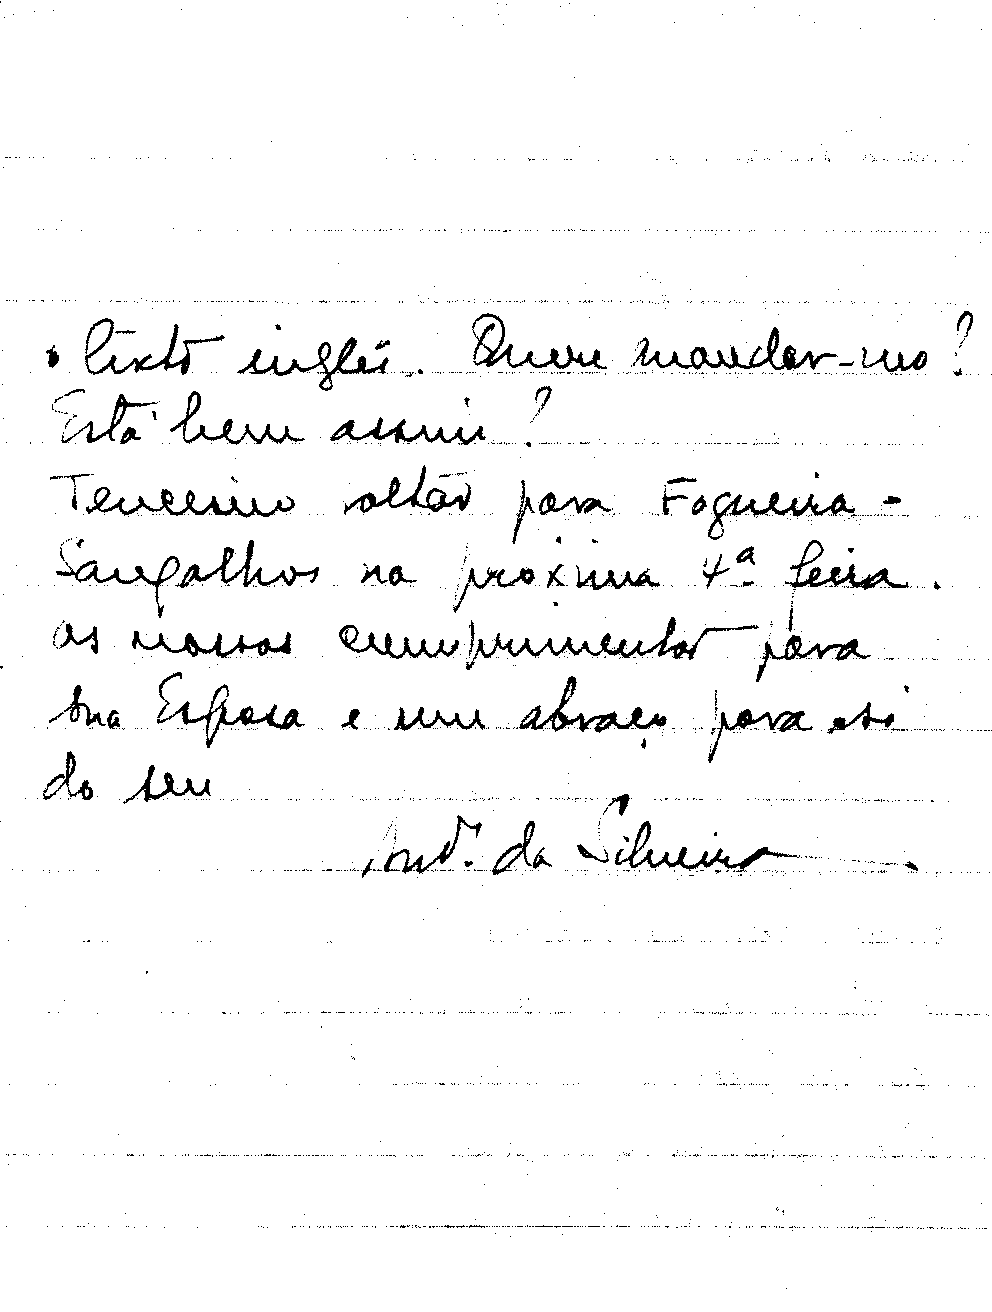 o texto inglês. Quere mandar-mo?
Está bem assim?
Tenciono voltar para Fogueira-
Sangalhos na próxima 4ª feira.
Os nossos cumprimentos para
sua Esposa e um abraço para si
do seu
da Silveira